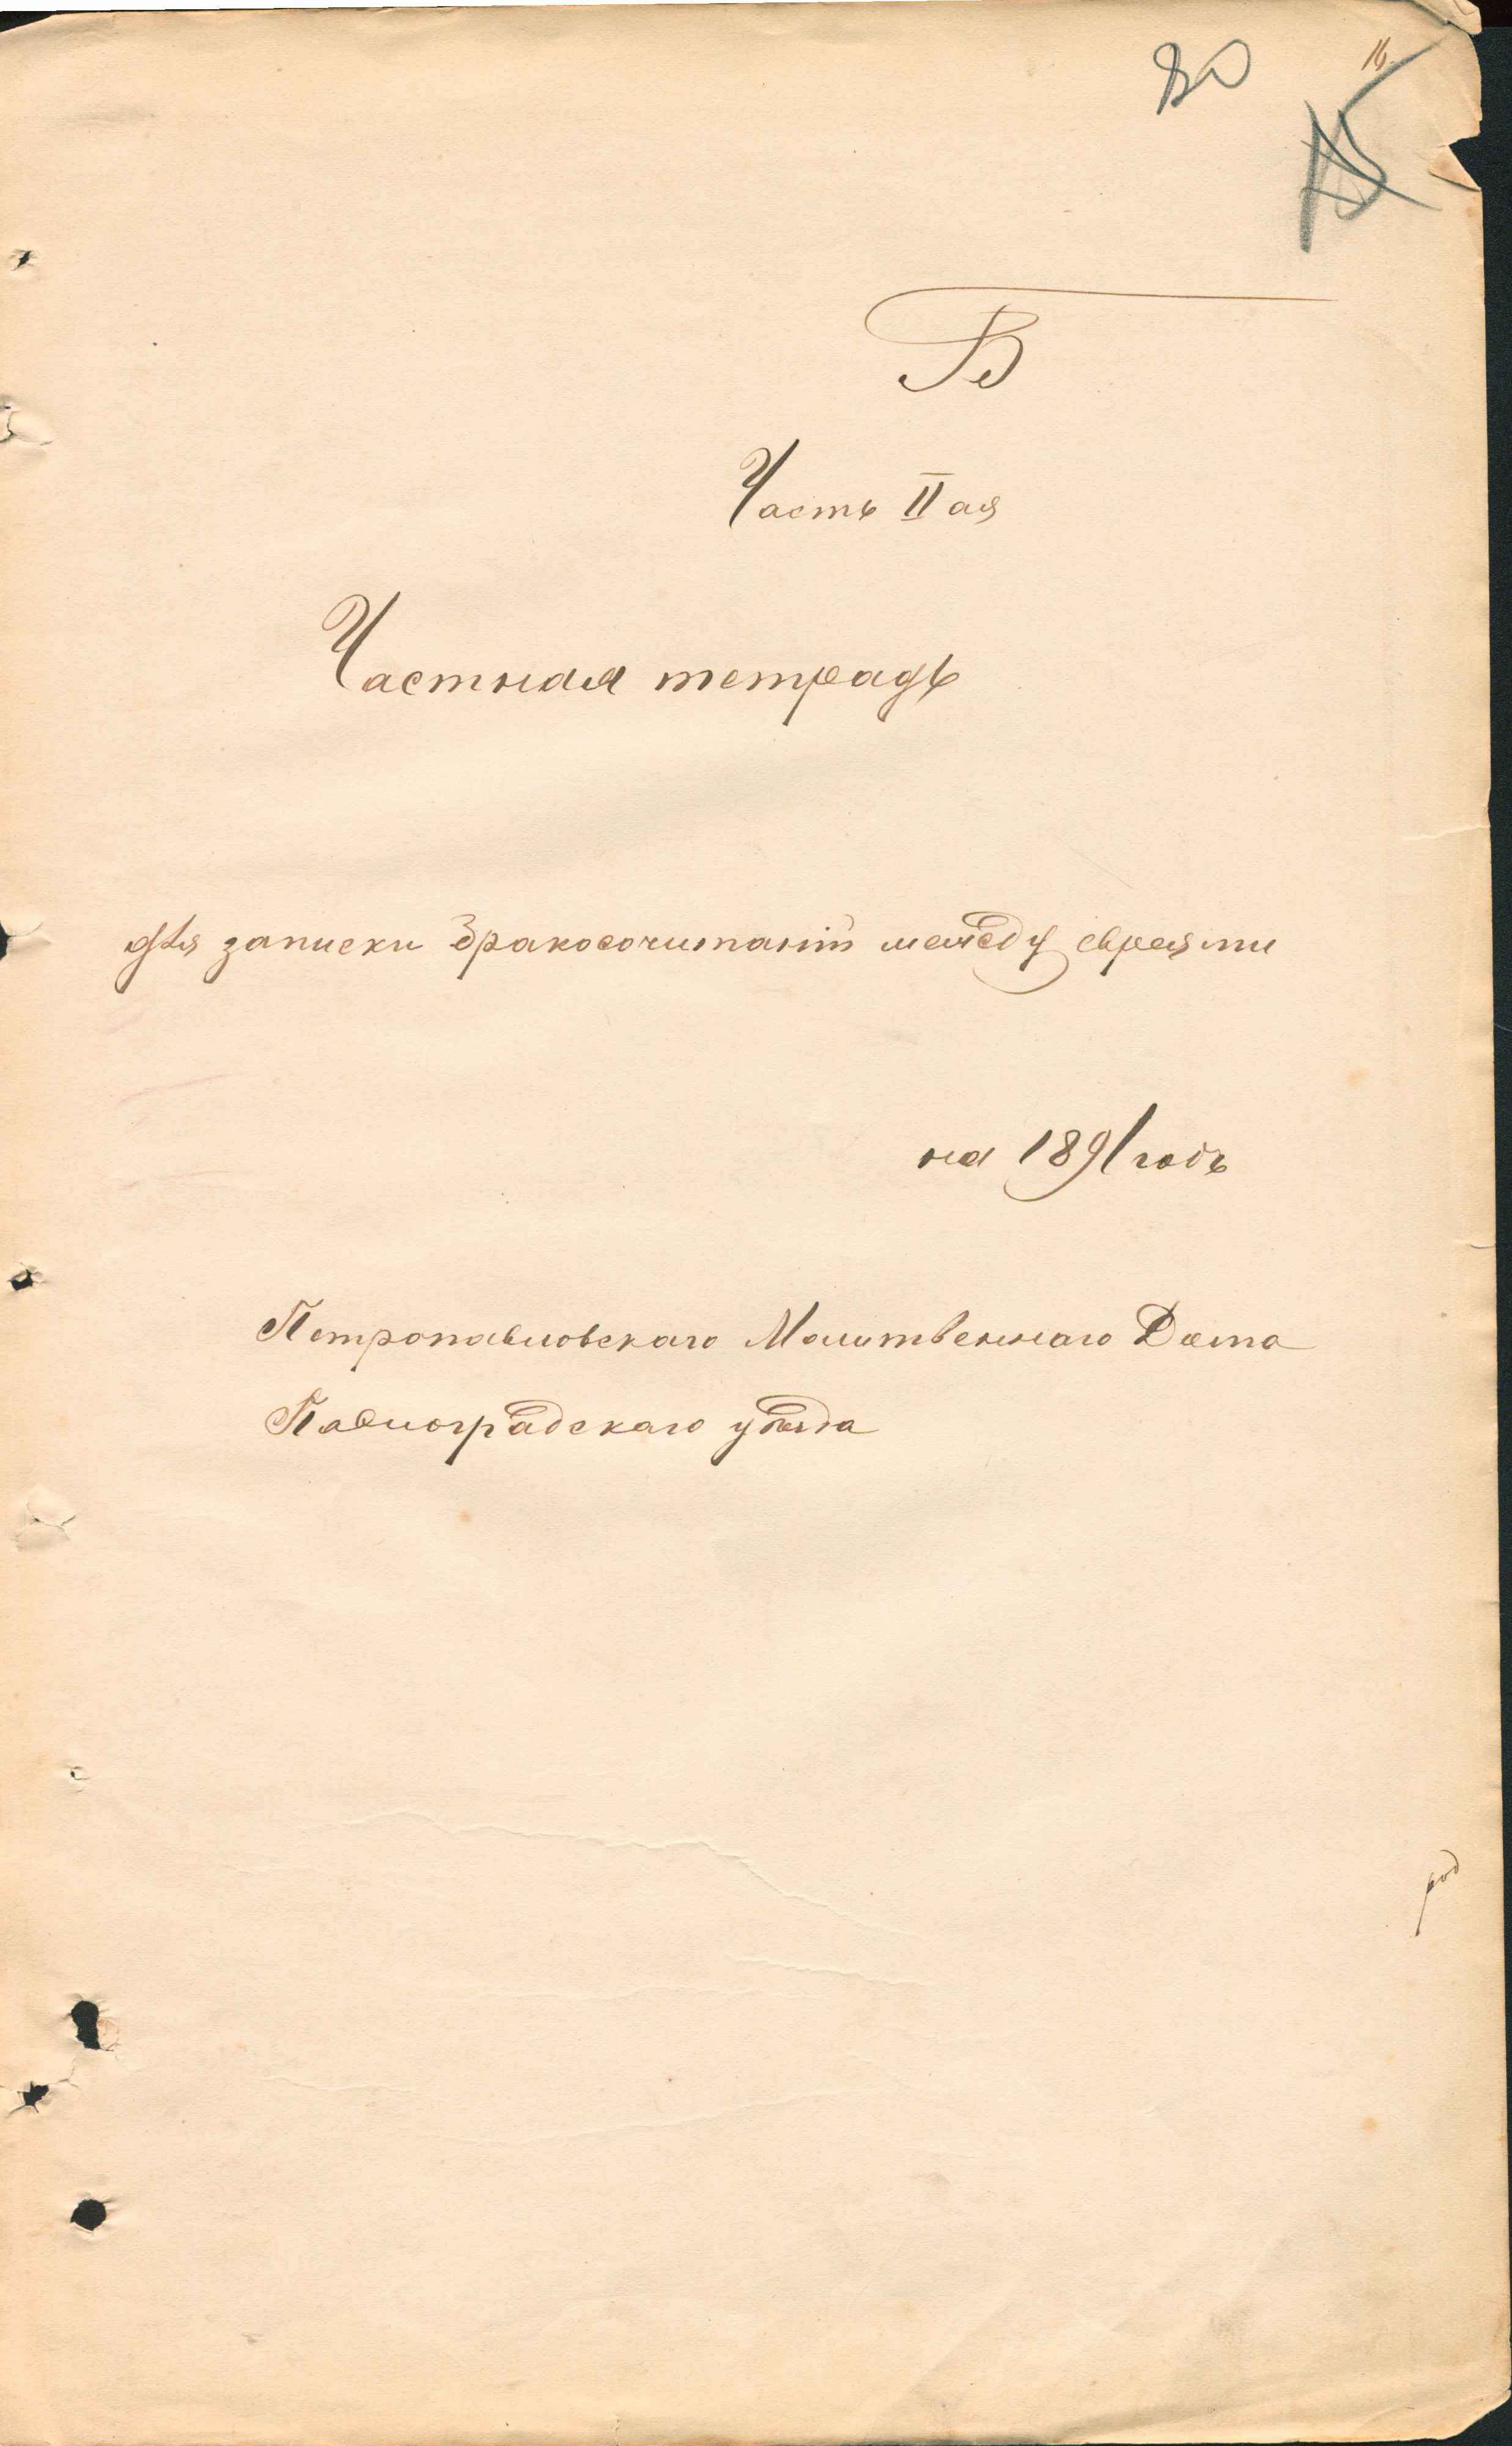 80
16
Б
Часть II ая
Частная тетрадь
для записки бракосочитаній между евреями
на 1891 годъ
Петропавловскаго Молитвеннаго Дома
Павлоградскаго уѣзда